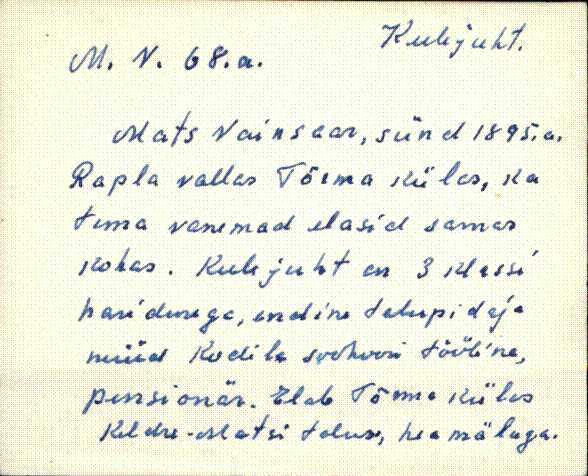 Kulejuht.
M. V. 68.a.
Mats Vainsaar, sünd 1895.a.
Rapla vallas Tõrma külas, ka
tema vanemad elasid samas
kohas. Kulejuht on 3 klassi
haridusega, endine talupidaja
nüüd Kodila sovhoosi tööline,
pensionär. Elab Tõrma külas
Keldre-Matsi talus, hea mäluga.